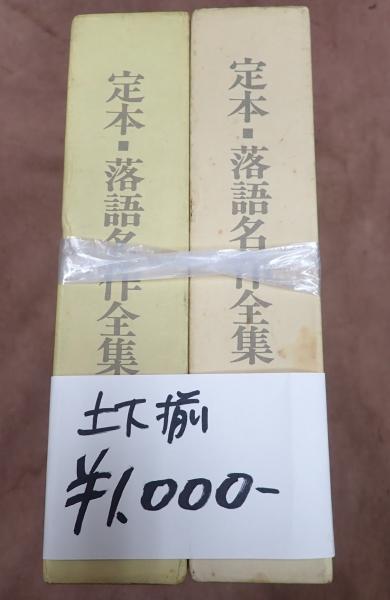 定本・落語名作全集
定本・落語名作全集
土下揃
¥1.000-